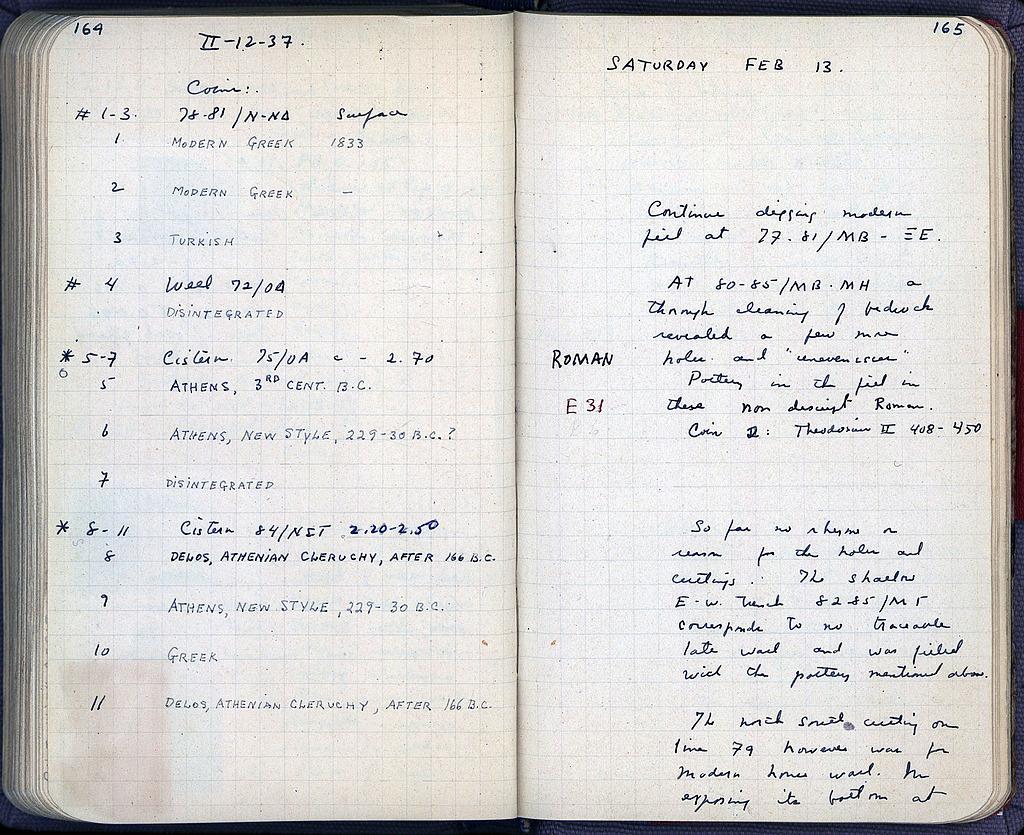 164
II-12-37.
Coins:.
# 1-3. 78-81/N-NΔ Surface
1. MODERN GREEK 1833
2 MODERN GREEK —
3 TURKISH
# 4 Well 72/ΟΔ
DISINTEGRATED
* 5-7 Cistern. 75/ΟΔ c - 2.70
5 ATHENS, 3RD CENT. B.C.
6 ATHENS, NEW STYLE, 229-30 B.C.?
7 DISINTEGRATED
* 8-11 Cistern 84/ΝΣΤ 2.20-2.50
8 DELOS, ATHENIAN CLERUCHY, AFTER 166 B.C.
9 ATHENS, NEW STYLE, 229-30 B.C.
10 GREEK
11 DELOS, ATHENIAN CLERUCHY, AFTER 166 B.C.
165
SATURDAY FEB 13.
Continue digging modern
fill at 77-81/MB - ΞE.
At 80-85/MB-MH a
through cleaning of bedrock
revealed a few more
ROMAN holes and "unevenesses"
Pottery in the fill in
E 31 these non descript Roman.
Coin 2: Theodosius II 408-450
So far no rhyme or
reason for the holes and
cuttings. The shallow
E-W. trench 82-85/MΓ
corresponds to no traceable
late wall and was filled
with the pottery mentioned above.
The north south cutting on
line 79 however was for
modern house wall. In
exposing its bottom at